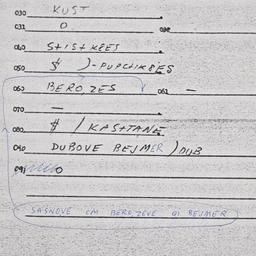 030 KUST
031 O
040 STISTKEES
050 $ )-PUPCHIKEES
060 BEROZES 061 —
070 —
080 $ / KASHTANE
090 DUBOVE BEJMER ) DUB
091 O
SASNOVE OM BEROZEVE OI BEJMER